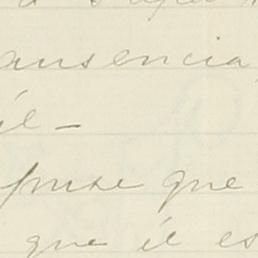 ausencia,
él —
puse que
que él es